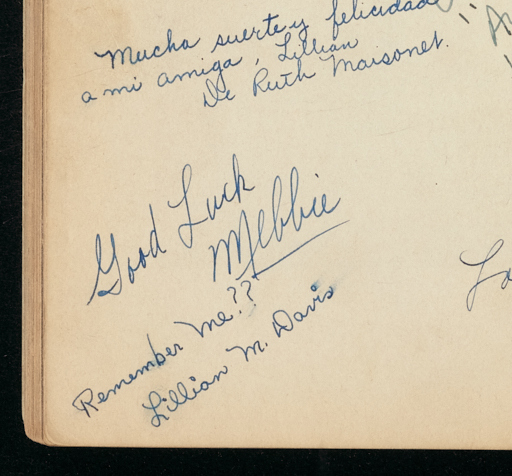 Mucha suerte y felicidad
a mi amiga, Lillian
De Ruth Maisonet.
Good Luck
Mebbie
Remember me??
Lillian M. Davis